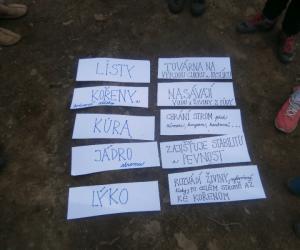 LISTY
KOŘENY
KŮRA
JÁDRO
LÝKO
TOVÁRNA NA
VÝROBU
NASÁVAJÍ
VODU A ŽIVINY Z PŮDY
CHRÁNÍ STROM před
ZAJIŠŤUJE STABILITU
A PEVNOST
ROZVÁDÍ ŽIVINY
PO CELÉM STROMĚ AŽ
KE KOŘENŮM